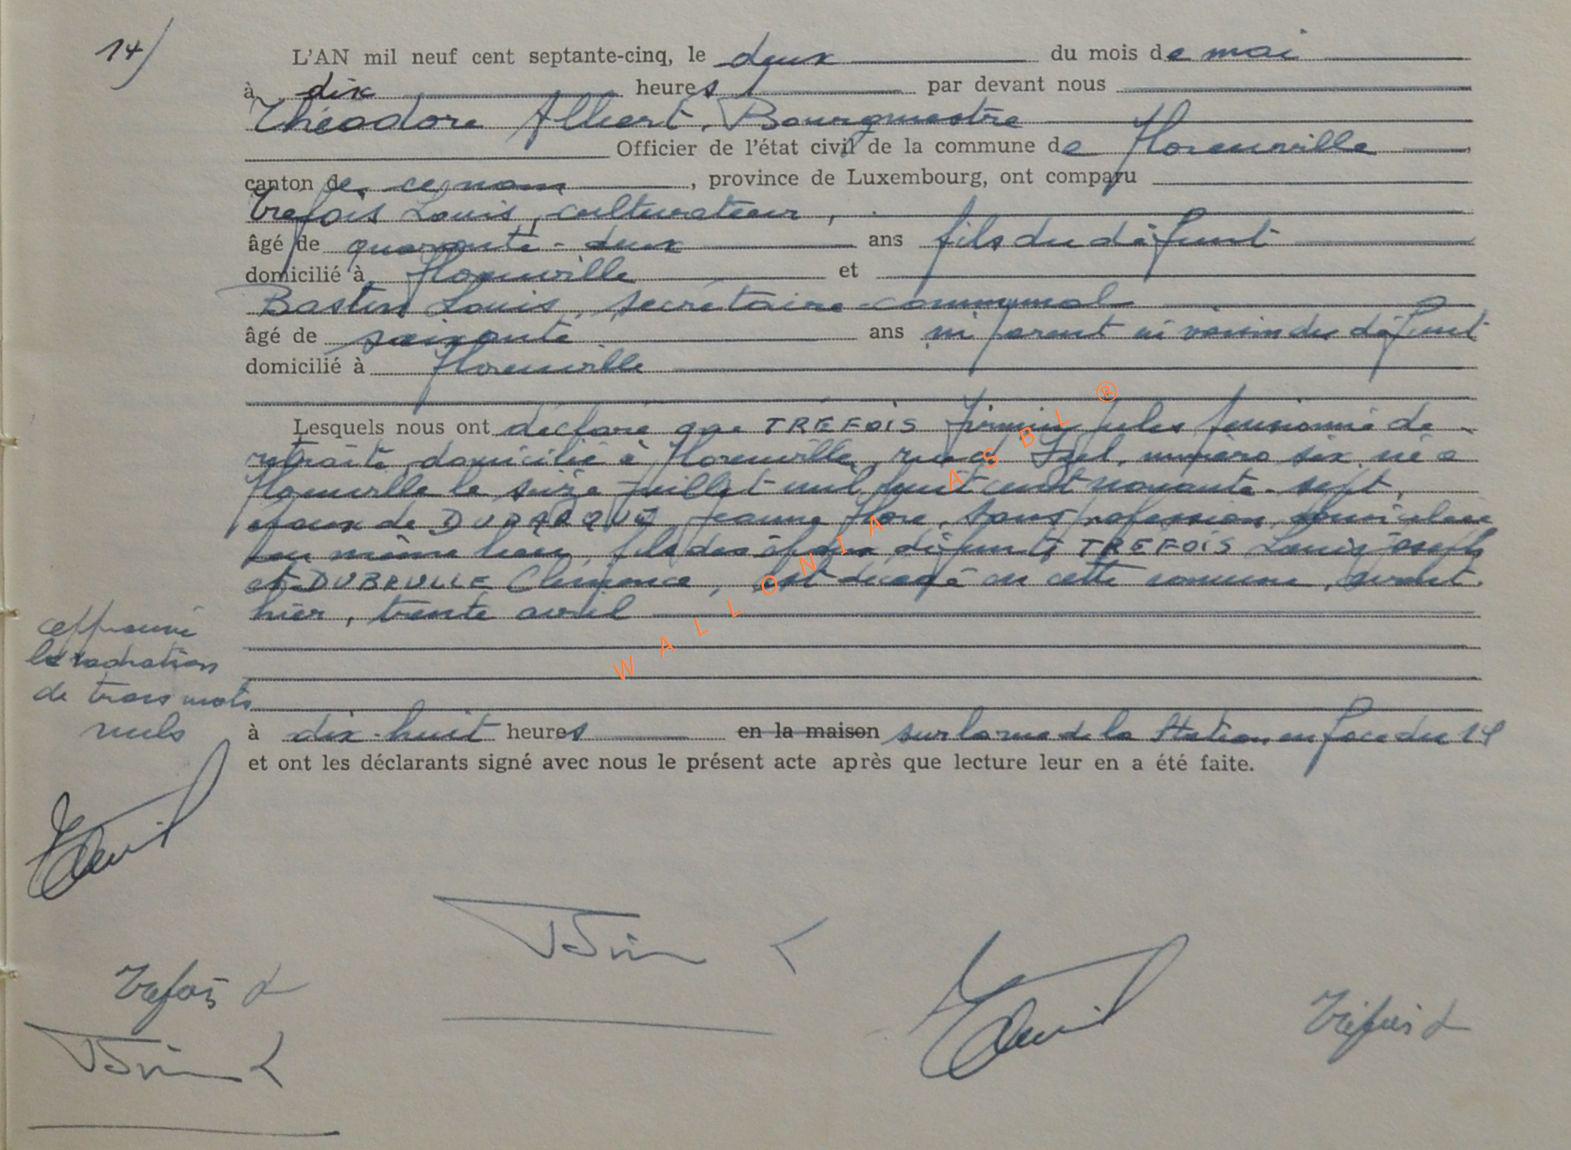 14)
L'AN mil neuf cent septante-cinq, le deux du mois de mai
à dix heures par devant nous
Théodore Albert, Bourgmestre
Officier de l'état civil de la commune de Florenville
canton de ce nom, province de Luxembourg, ont comparu
Tréfois Louis, cultivateur,
âgé de quarante-deux ans fils du défunt
domicilié à Florenville et
Bastin Louis, secrétaire communal
âgé de soixante ans ni parent ni voisin du défunt
domicilié à Florenville
Lesquels nous ont déclaré que TREFOIS Firmin Jules pensionné de
retraite, domicilié à Florenville, rue d'Izel, numéro six, né à
Florenville le seize juillet mil huit cent nonante-sept,
époux de Jeanne Flore, sans profession domiciliée
au même lieu, fils des époux défunts TREFOIS Louis Joseph
et DUBRULLE Clémence, est décédé en cette commune, avant
hier, trente avril
approuvé
la radiation
de trois mots
nuls
à dix-huit heures en la maison sur la rue de la Station en face du 14
et ont les déclarants signé avec nous le présent acte après que lecture leur en a été faite.
Tréfois L
Tréfois L
WALLONIA ASBL ®